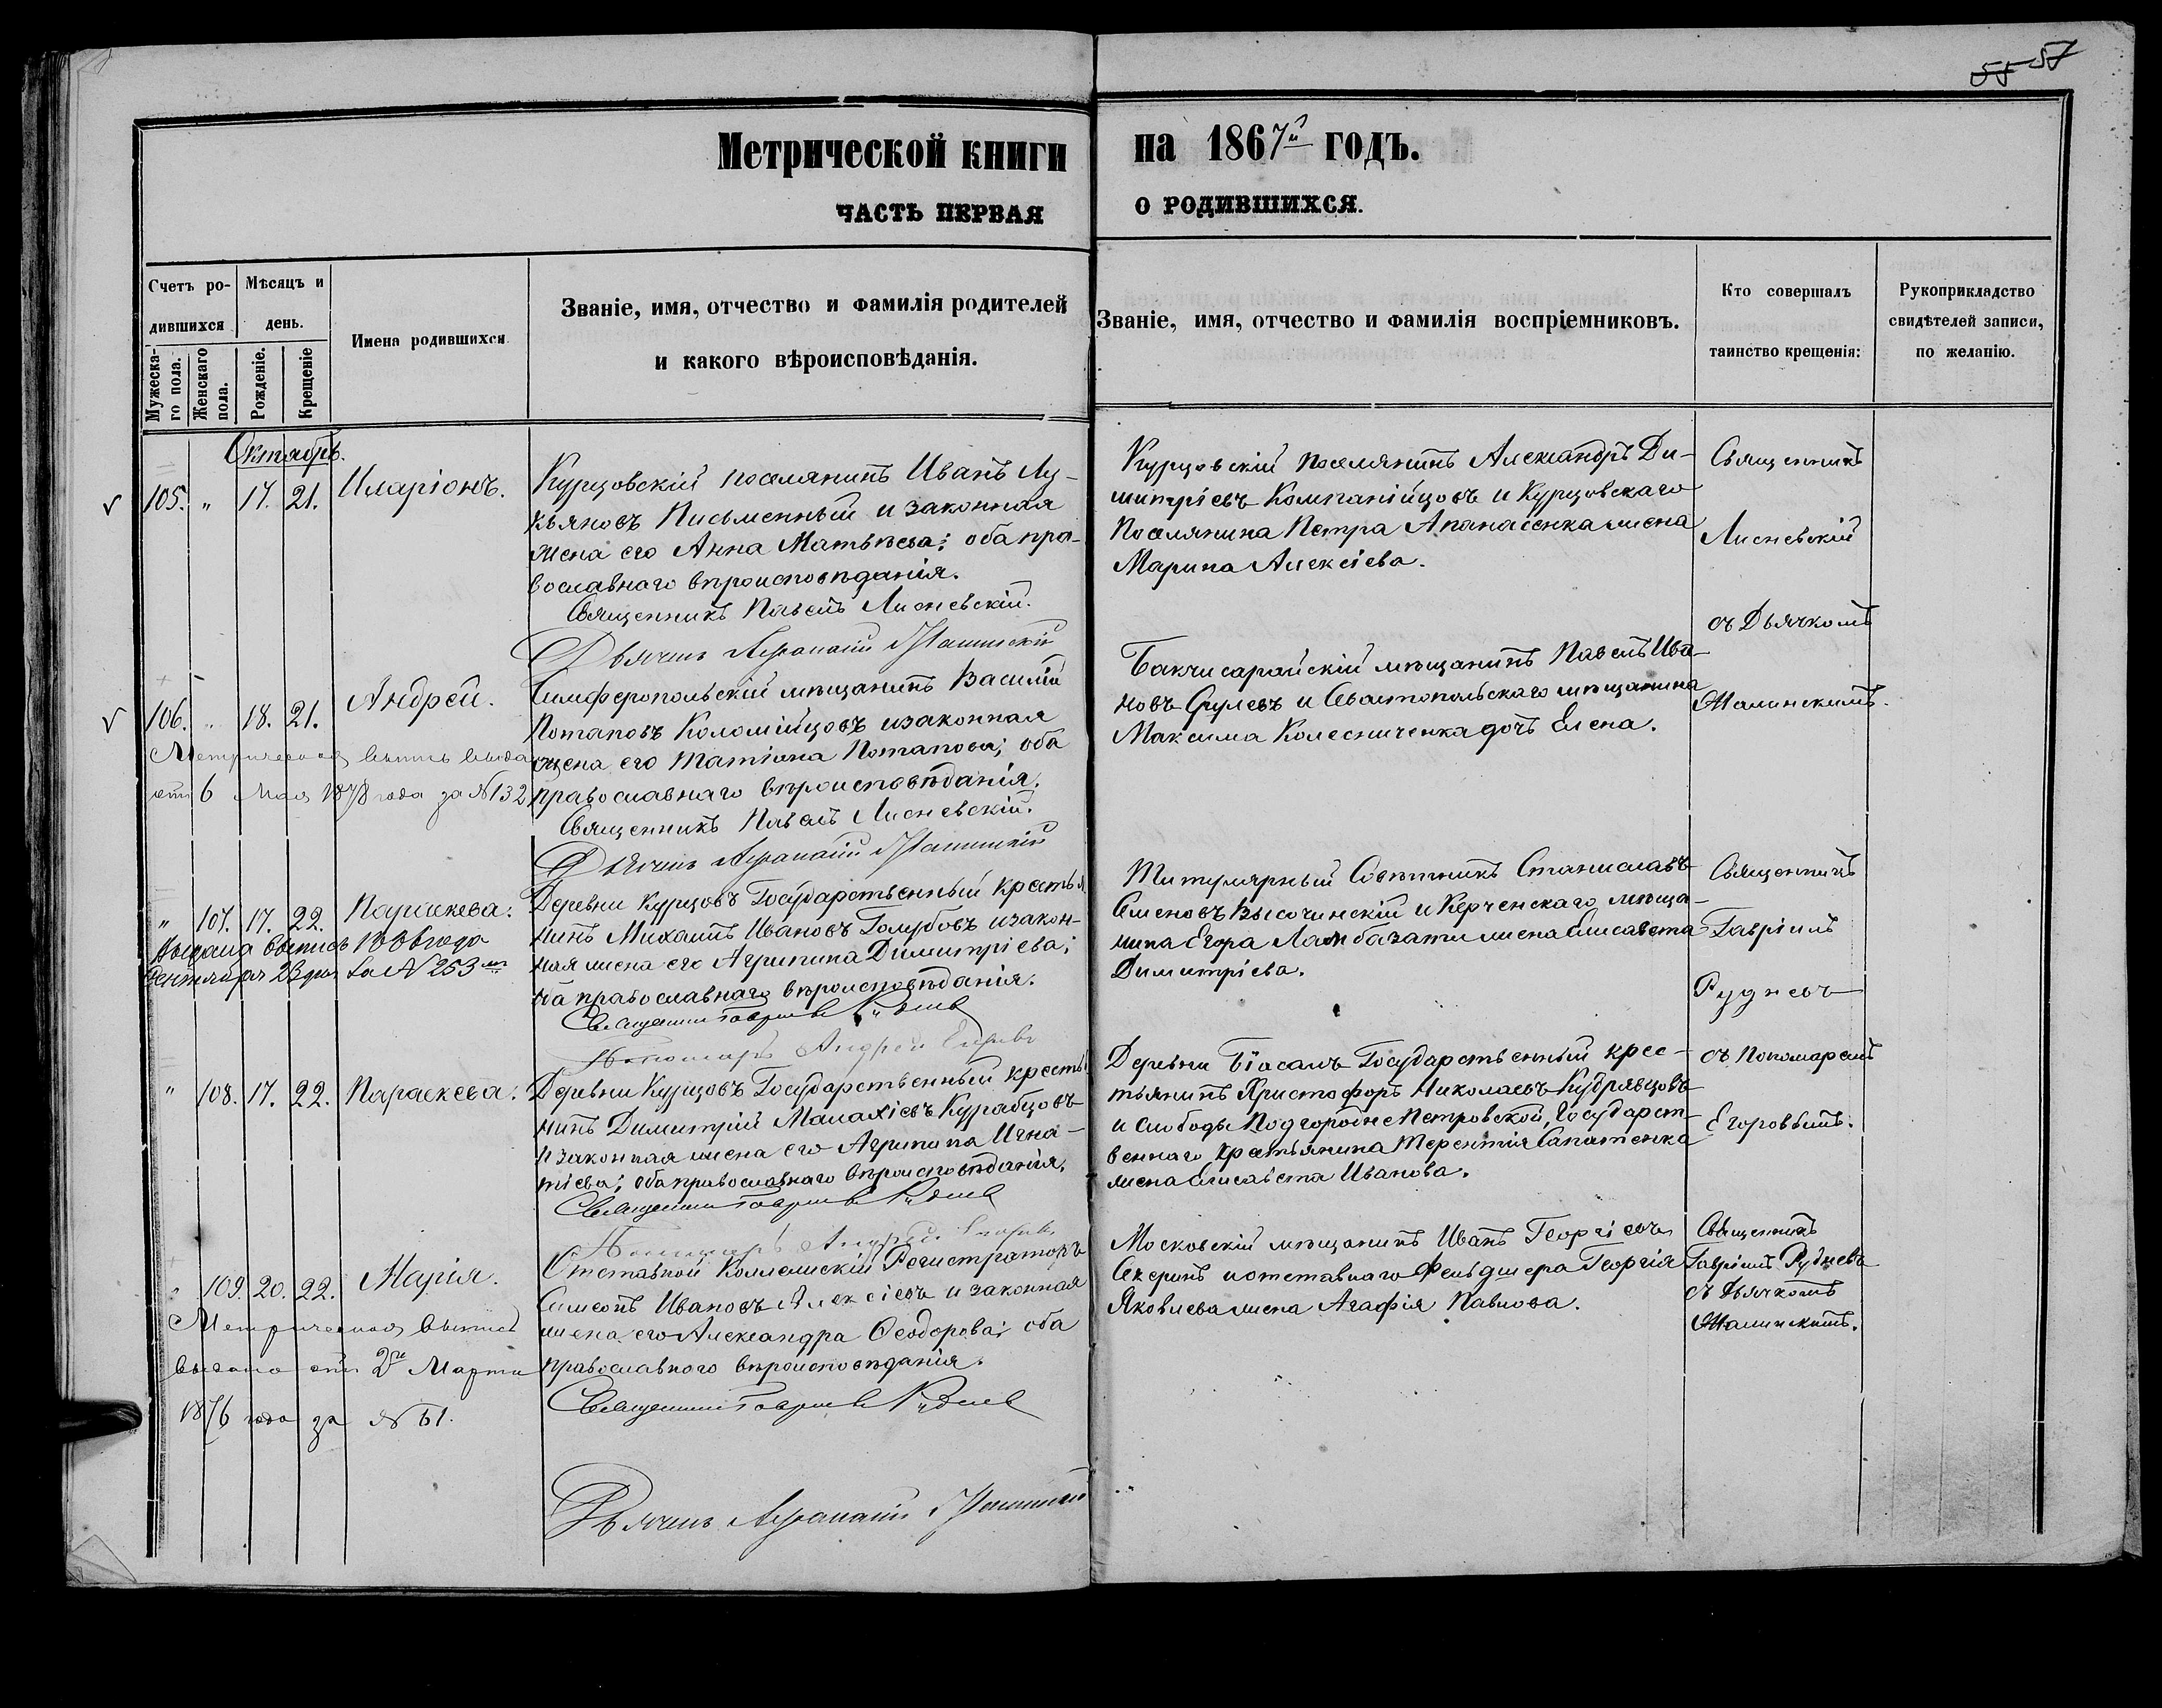 55 57
Метрической книги на 1867й годъ.
ЧАСТЬ ПЕРВАЯ О РОДИВШИХСЯ.
Счетъ ро-
дившихся
Мужеска-
го пола.
Женскаго
пола.
Мѣсяцъ и
день.
Рожденіе.
Крещеніе
Имена родившихся
Званіе, имя, отчество и фамилія родителей
и какого вѣроисповѣданія.
Званіе, имя, отчество и фамилія воспріемниковъ.
Кто совершалъ
таинство крещенія:
Рукоприкладство
свидѣтелей записи,
по желанію.
Октябрь.
105. " 17. 21. Иларіонъ.
Курцовскій поселянинъ Иванъ Лу-
кьяновъ Письменный и законная
жена его Анна Матвѣева; оба пра-
вославнаго вѣроисповѣданія.
Священникъ Павелъ Лисневскій.
Дьячекъ
Курцовскій поселянинъ Александръ Ди-
митріевъ Компанійцовъ и Курцовскаго
поселянина Петра Апанасенка жена
Марина Алексіева.
Священникъ
Лисневскій
съ Дьячкомъ
106. " 18. 21. Андрей.
Симферопольскій мѣщанинъ Василій
Потаповъ Коломійцовъ и законная
жена его Татіана Потапова; оба
православнаго вѣроисповѣданія.
Священникъ Павелъ Лисневскій.
Дьячекъ
Метрическая выпись выда
отъ 6 Мая 1878 года за № 132
Бакчисарайскій мѣщанинъ Павелъ Ива-
новъ и Севастопольскаго мѣщанина
Максима Колесниченка дочь Елена.
" 107. 17. 22. Параскева.
Выдана выпись года
Сентября 23 дня за № 253
Деревни Курцовъ Государственный крестья
нинъ Михаилъ Ивановъ Голубовъ и закон-
ная жена его Агрипина Димитріева;
оба православнаго вѣроисповѣданія.
Священникъ Гавріилъ Рудневъ
Пономарь Андрей Егоровъ
Титулярный Совѣтникъ Станиславъ
Семеновъ Высочинскій и Керченскаго мѣща-
нина Егора Ламбазати жена Елисавета
Димитріева.
Священникъ
Гавріилъ
Рудневъ
съ Пономаремъ
Егоровымъ.
" 108. 17. 22. Параскева.
Деревни Курцовъ Государственный крестья
нинъ Димитрій Малахіевъ Курабцовъ
и законная жена его Агрипина Игна-
тіева; оба православнаго вѣроисповѣданія.
Священникъ Гавріилъ Рудневъ
Пономарь Андрей Егоровъ
Деревни Біасалъ Государственный крес-
тьянинъ Христофоръ Николаевъ Кудрявцовъ
и слободы Подгородне Петровской, Государст-
веннаго крестьянина Терентія Сапатенка
жена Елисавета Иванова.
" 109. 20. 22. Марія.
Метрическая выпись
выдана отъ 2го Марта
1876 года за № 61.
Отставной Коллежскій Регистраторъ
Симеонъ Ивановъ Алексіевъ и законная
жена его Александра Ѳеодорова; оба
православного вѣроисповѣданія.
Священникъ Гавріилъ Рудневъ
Дьячекъ
Московскій мѣщанинъ Иванъ Георгіевъ
Секеринъ и отставнаго Фельдшера Георгія
Яковлева жена Агафія Павлова.
Священникъ
Гавріилъ Рудневъ
съ Дьячкомъ